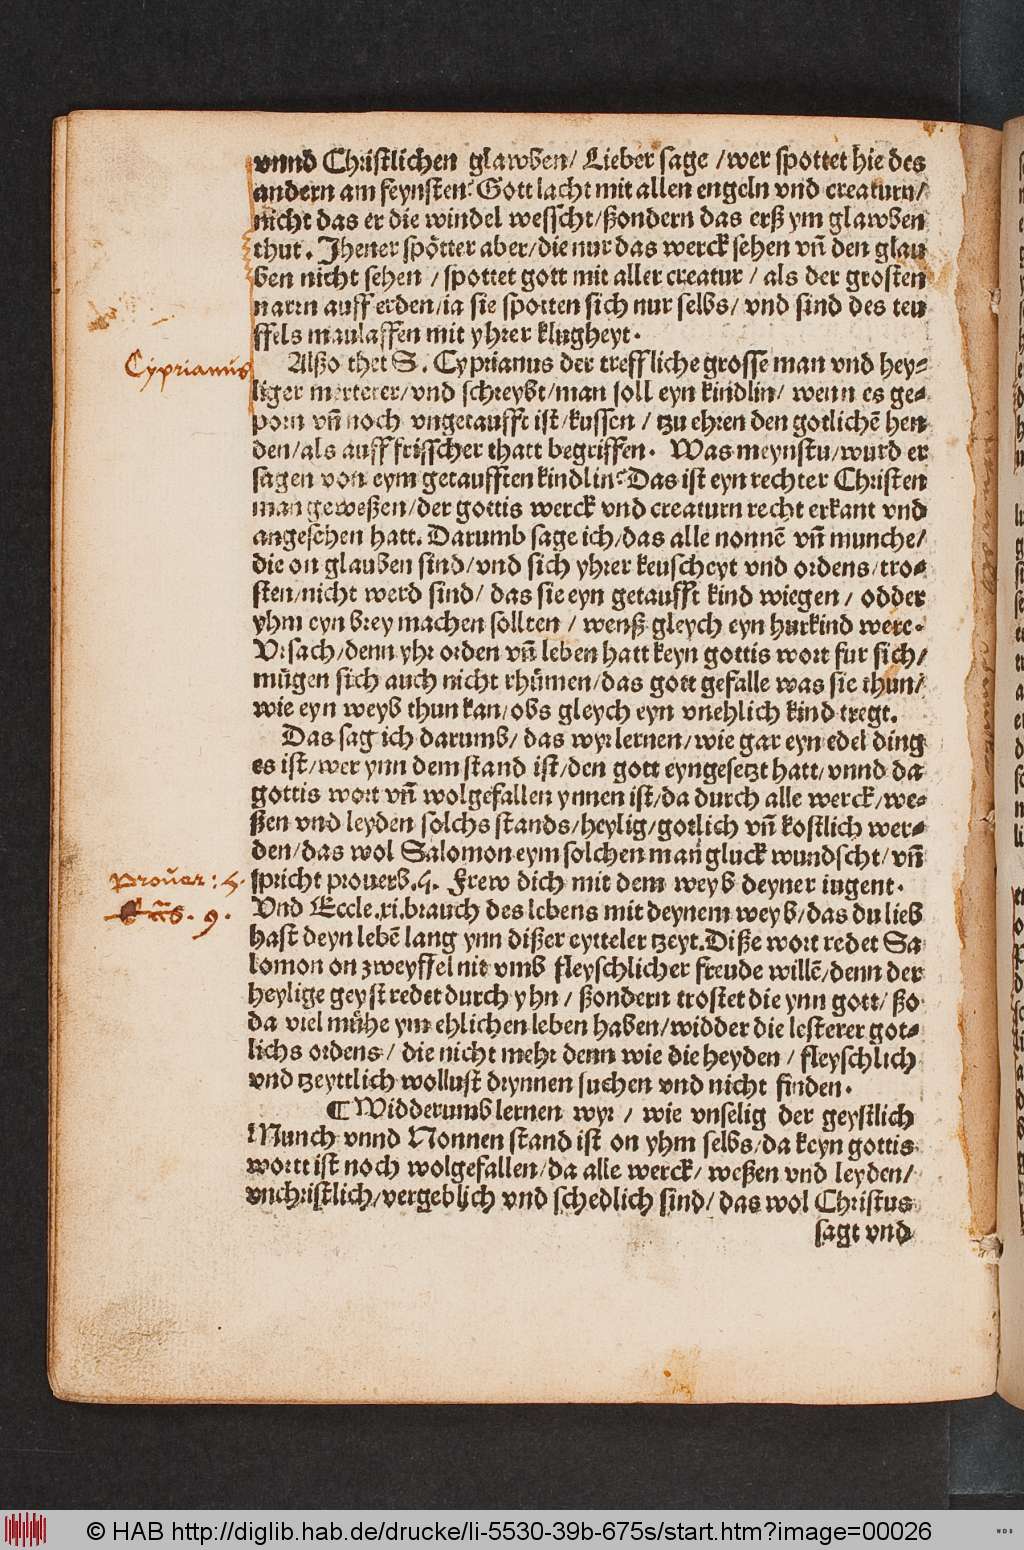 vnnd Christlichen glawben/ Lieber sage /wer spottet hie des
andern am feynsten? Gott lacht mit allen engeln vnd creaturn/
nicht das er die windel wesscht/ßondern das erß ym glawben
thut. Jhener spötter aber/die nur das werck sehen vñ den glau
ben nicht sehen / spottet gott mit aller creatur / als der grosten
narrn auff erden/ia sie spotten sich nur selbs/ vnd sind des teu
ffels maulaffen mit yhrer klugheyt.
Cyprianus
Alßo thet S. Cyprianus der treffliche grosse man vnd hey-
liger merterer/vnd schreybt/man soll eyn kindlin/ wenn es ge-
porn vñ noch vngetaufft ist/kussen / tzu ehren den gotlichẽ hen
den/als auff frisscher thatt begriffen. Was meynstu/wurd er
sagen von eym getaufften kindlin? Das ist eyn rechter Christen
man geweßen/der gottis werck vnd creaturn recht erkant vnd
angesehen hatt. Darumb sage ich/das alle nonnẽ vñ munche/
die on glauben sind/vnd sich yhrer keuscheyt vnd ordens/tro-
sten/nicht werd sind/ das sie eyn getaufft kind wiegen/ odder
yhm eyn brey machen sollten / wenß gleych eyn hurkind were.
Vrsach/denn yhr orden vñ leben hatt keyn gottis wort fur sich/
mügen sich auch nicht rhümen/das gott gefalle was sie thun/
wie eyn weyb thun kan/obs gleych eyn vnehlich kind tregt.
Das sag ich darumb/ das wyr lernen/wie gar eyn edel ding
es ist/wer ynn dem stand ist/den gott eyngesetzt hatt/vnnd da
gottis wort vñ wolgefallen ynnen ist/da durch alle werck/we-
ßen vnd leyden solchs stands/heylig/gotlich vñ kostlich wer-
den/das wol Salomon eym solchen man gluck wundscht/vñ
Prouer: 5.
spricht prouerb.5. Frew dich mit dem weyb deyner iugent.
9.
Vnd Eccle.xi.brauch des lebens mit deynem weyb/das du lieb
hast deyn lebẽ lang ynn dißer eytteler tzeyt.Diße wort redet Sa
lomon on zweyffel nit vmb fleyschlicher freude willẽ/denn der
heylige geyst redet durch yhn / ßondern trostet die ynn gott/ ßo
da viel mühe ym ehlichen leben haben/widder die lesterer got-
lichs ordens/ die nicht mehr denn wie die heyden / fleyschlich
vnd tzeyttlich wollust drynnen suchen vnd nicht finden.
¶ Widderumb lernen wyr / wie vnselig der geystlich
Munch vnnd Nonnen stand ist on yhm selbs/da keyn gottis
wortt ist noch wolgefallen/da alle werck/ weßen vnd leyden/
vnchristlich/vergeblich vnd schedlich sind/ das wol Christus
sagt vnd
© HAB http://diglib.hab.de/drucke/li-5530-39b-675s/start.htm?image=00026